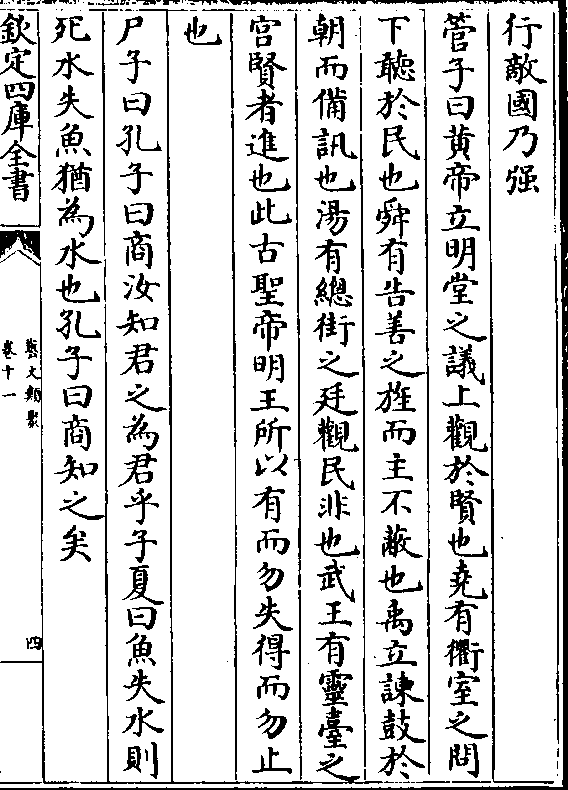 行敵國乃强
管子曰黄帝立明堂之議上觀於賢也堯有衢室之問
下聽於民也舜有告善之旌而主不蔽也禹立諫鼓於
朝而備訊也湯有總街之廷觀民非也武王有靈臺之
宫賢者進也此古聖帝明王所以有而勿失得而勿止
也
尸子曰孔子曰商汝知君之為君乎子夏曰魚失水則
死水失魚猶為水也孔子曰商知之矣
欽定四庫全書
藝文類聚
卷十一
四